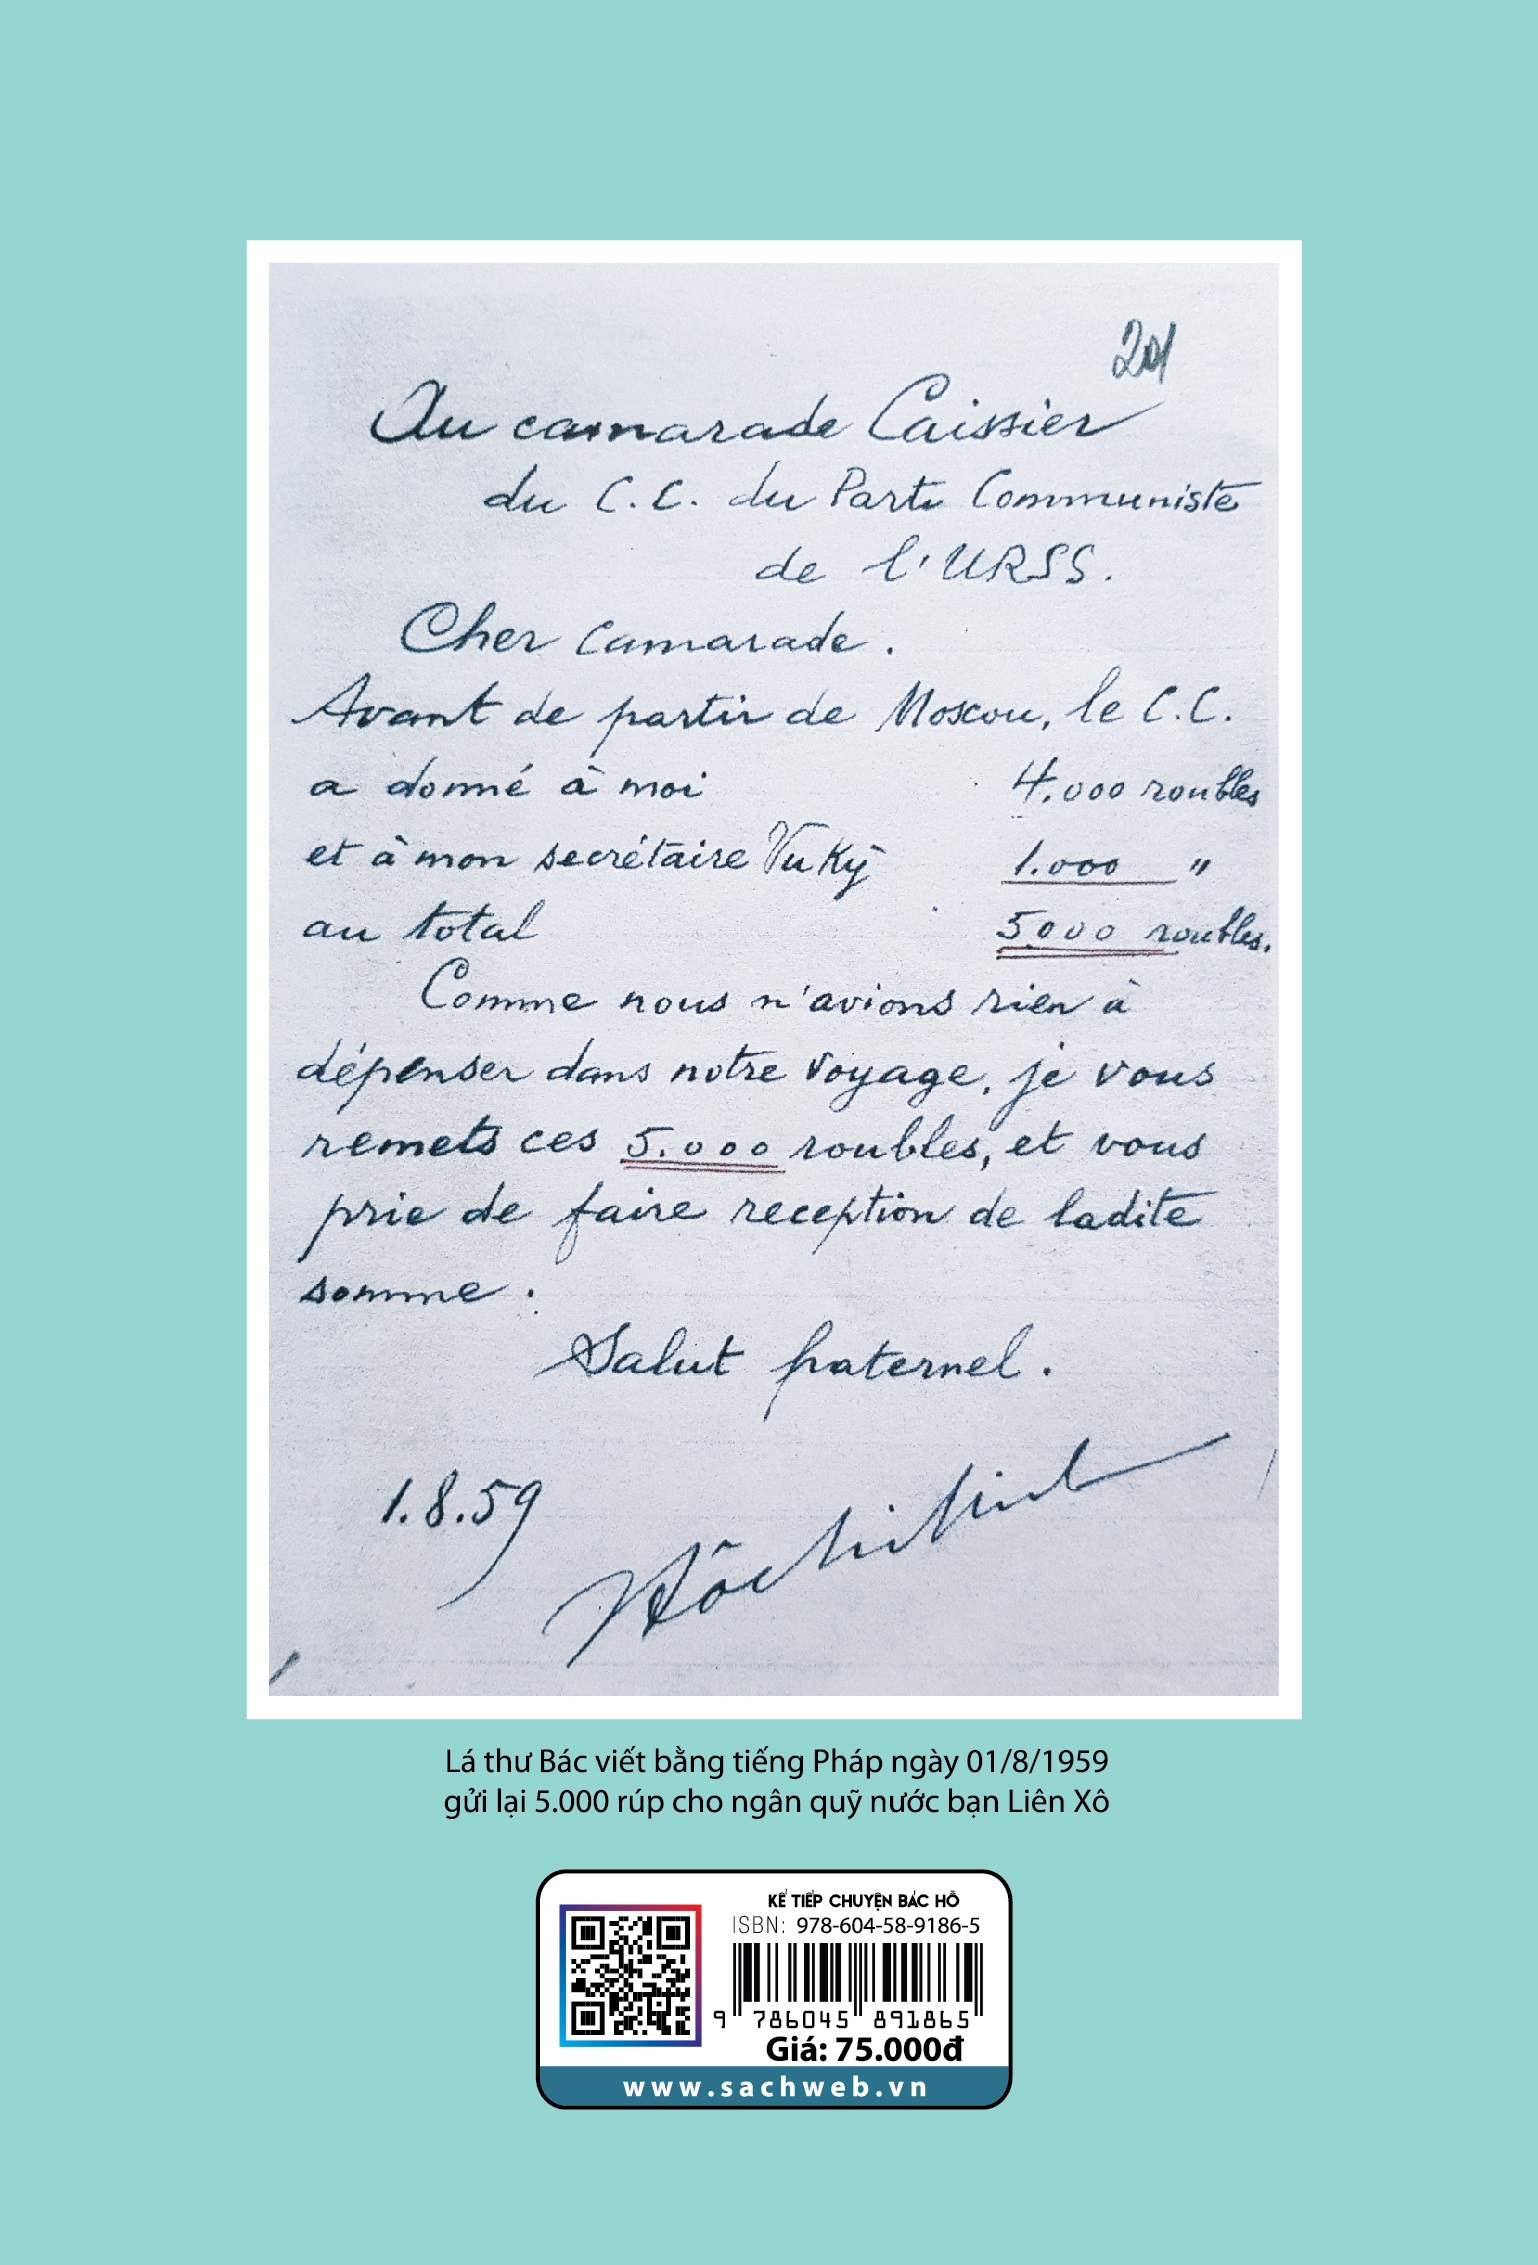 201
Au camarade Caissier
du C.C. du Parti Communiste
de l'URSS.
Cher camarade.
Avant de partir de Moscou, le C.C.
a donné à moi 4.000 roubles
et à mon secrétaire Vu Kỳ 1.000 "
au total 5.000 roubles.
Comme nous n'avions rien à
dépenser dans notre voyage, je vous
remets ces 5.000 roubles, et vous
prie de faire reception de ladite
somme.
Salut fraternel.
1.8.59
Hồ Chí Minh
Lá thư Bác viết bằng tiếng Pháp ngày 01/8/1959
gửi lại 5.000 rúp cho ngân quỹ nước bạn Liên Xô
KỂ TIẾP CHUYỆN BÁC HỒ
ISBN: 978-604-58-9186-5
9 786045 891865
Giá: 75.000đ
www.sachweb.vn